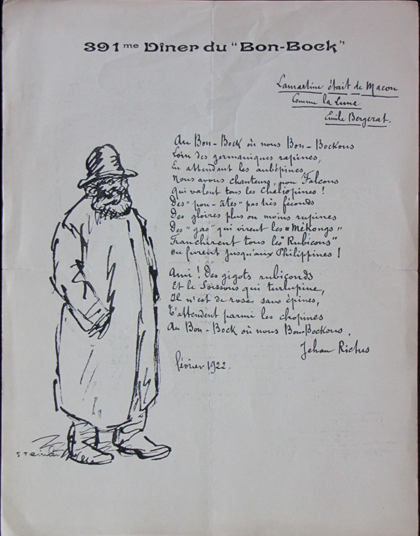 391me Dîner du "Bon-Bock"
Lamartine était de Macon
Comme la Lune
Emile Bergerat.
Au Bon-Bock où nous Bon-Bockons
Loin des germaniques rapines,
En attendant les aubépines,
Nous avons chanteurs pour Falcons
Qui valent tous les Chaliapines !
Des "pou-ates" pas très féconds
Des gloires plus ou moins rupines
Des "gas" qui virent les "Mékongs"
Franchirent tous les "Rubicons"
Ou furent jusqu'aux Philippines !
Ami ! Des gigots rubiconds
Et le Soissons qui turlupine,
Il n'est de roses sans épines,
T'attendent parmi les chopines
Au Bon-Bock où nous Bon-Bockons.
Jehan Rictus
février 1922.